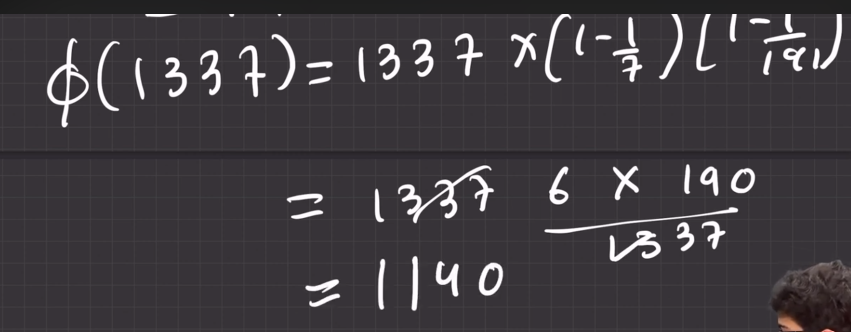 ϕ(1337) = 1337 × (1 - 1/7) (1 - 1/191)
= 1337 6 × 190 / 1337
= 1140